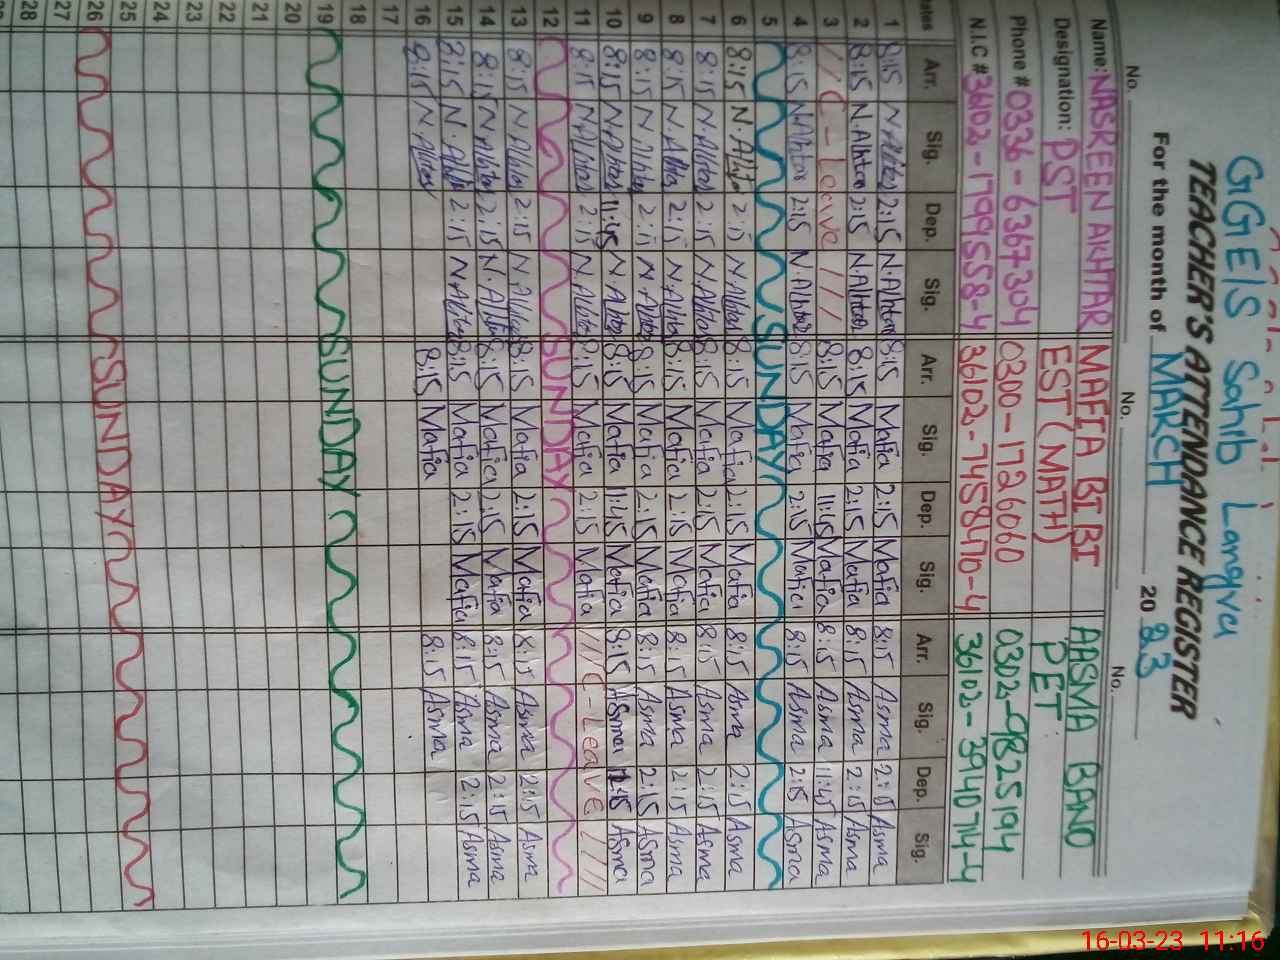 GGEIS Sahib Langva
TEACHER'S ATTENDANCE REGISTER
For the month of MARCH 2023
No. No. No.
Name: NASREEN AKHTAR MAFIA BI BI AASMA BANO
Designation: PST EST (MATH) PET
Phone # 0336-6367304 0300-1726060 0302-9825194
N.I.C # 36102-1799558-4 36102-7458470-4 36102-3940714-4
ates Arr. Sig. Dep. Sig. Arr. Sig. Dep. Sig. Arr. Sig. Dep. Sig.
1 8:15 N.Akhtar 2:15 N.Akhtar 8:15 Mafia 2:15 Mafia 8:15 Asma 2:15 Asma
2 8:15 N.Akhtar 2:15 N.Akhtar 8:15 Mafia 2:15 Mafia 8:15 Asma 2:15 Asma
3 // C-Leave /// 8:15 Mafia 11:45 Mafia 8:15 Asma 11:45 Asma
4 8:15 N.Akhtar 2:15 N.Akhtar 8:15 Mafia 2:15 Mafia 8:15 Asma 2:15 Asma
5 SUNDAY
6 8:15 N.Akhtar 2:15 N.Akhtar 8:15 Mafia 2:15 Mafia 8:15 Asma 2:15 Asma
7 8:15 N.Akhtar 2:15 N.Akhtar 8:15 Mafia 2:15 Mafia 8:15 Asma 2:15 Asma
8 8:15 N.Akhtar 2:15 N.Akhtar 8:15 Mafia 2:15 Mafia 8:15 Asma 2:15 Asma
9 8:15 N.Akhtar 2:15 N.Akhtar 8:15 Mafia 2:15 Mafia 8:15 Asma 2:15 Asma
10 8:15 N.Akhtar 11:45 N.Akhtar 8:15 Mafia 11:45 Mafia 8:15 Asma Asma
11 8:15 N.Akhtar 2:15 N.Akhtar 8:15 Mafia 2:15 Mafia /// C-Leave ////
12 SUNDAY
13 8:15 N.Akhtar 2:15 N.Akhtar 8:15 Mafia 2:15 Mafia 8:15 Asma 2:15 Asma
14 8:15 N.Akhtar 2:15 N.Akhtar 8:15 Mafia 2:15 Mafia 8:15 Asma 2:15 Asma
15 8:15 N.Akhtar 2:15 N.Akhtar 8:15 Mafia 2:15 Mafia 8:15 Asma 2:15 Asma
16 8:15 N.Akhtar 8:15 Mafia 8:15 Asma
17
18
19 SUNDAY
20
21
22
23
24
25
26 SUNDAY
27
28
16-03-23 11:16